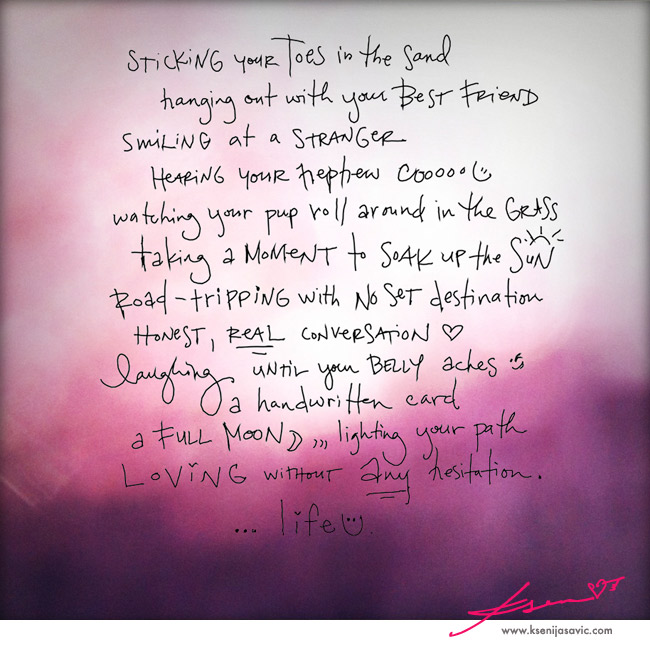 STICKING YOUR TOES in the Sand
hanging out with your BEST FRIEND
SMiLiNG at a STRANGER
HEARING YOUR nephew COOOOO
watching your pup roll around in the GRASS
taking a MOMENT to SOAK UP the SUN
ROAD-tRIPPING with NO SET destination
HONEST, REAL CONVERSATION ♡
laughing UNTIL your BELLY aches
a handwritten card
a FULL MOON ,,, lighting your path
LOViNG WITHOUT any hesitation.
... life.
Ksen
www.ksenijasavic.com